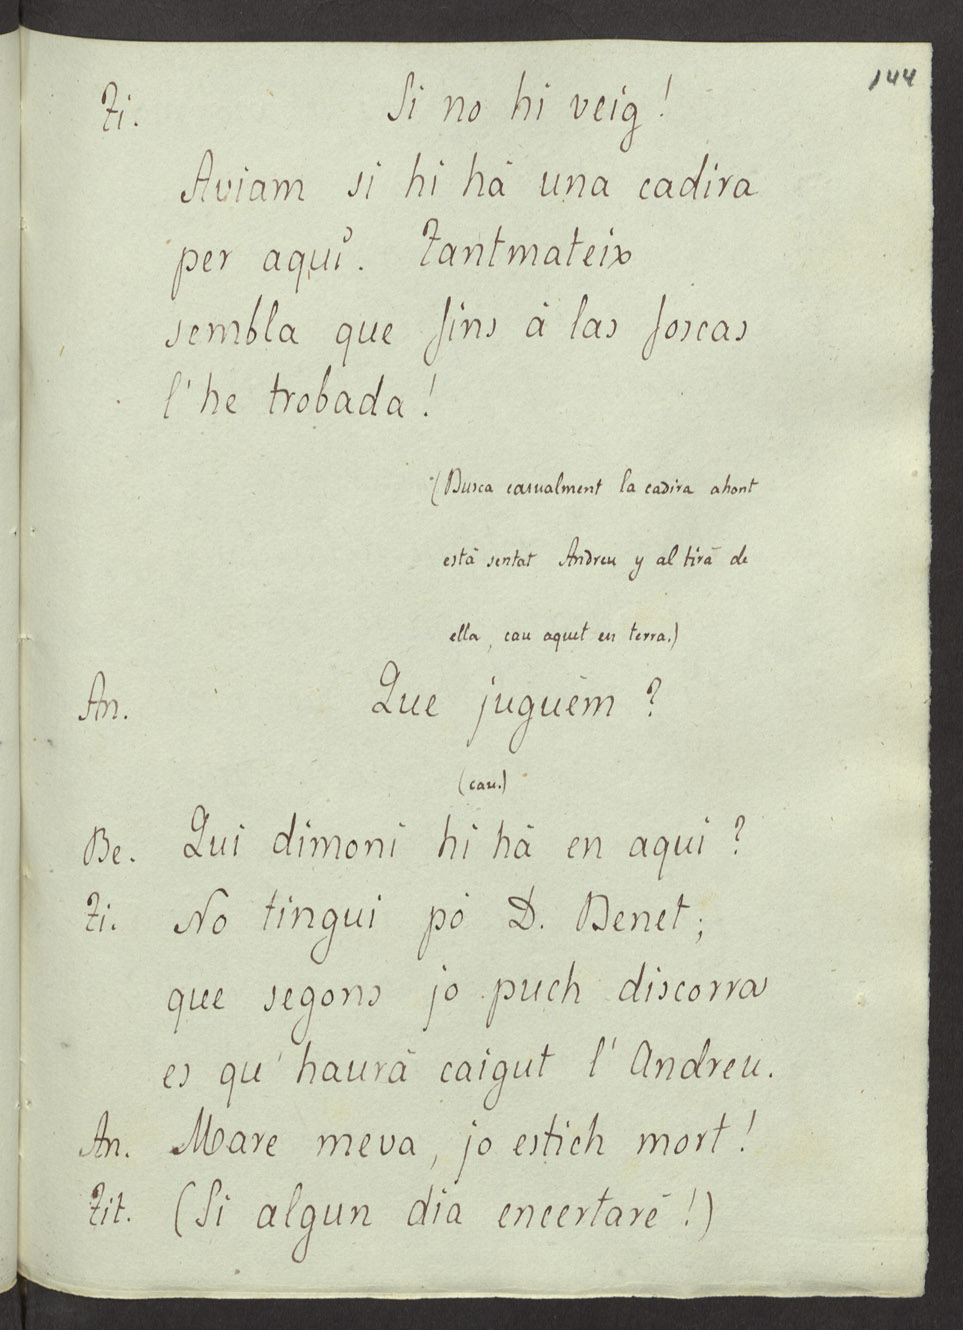 144
Ti. Si no hi veig!
Aviam si hi há una cadira
per aquí. Tantmateix
sembla que fins á las foscas
l'he trobada!
(Busca casualment la cadira ahont
está sentat Andreu y al tirá de
ella, cau aquet en terra.)
An. Que juguém?
(cau.)
Be. Qui dimoni hi há en aqui?
Ti. No tingui pó D. Benet;
que segons jo puch discorra
es qu' haurá caigut l' Andreu.
An. Mare meva, jo estich mort!
Tit. (Si algun dia encertaré!)